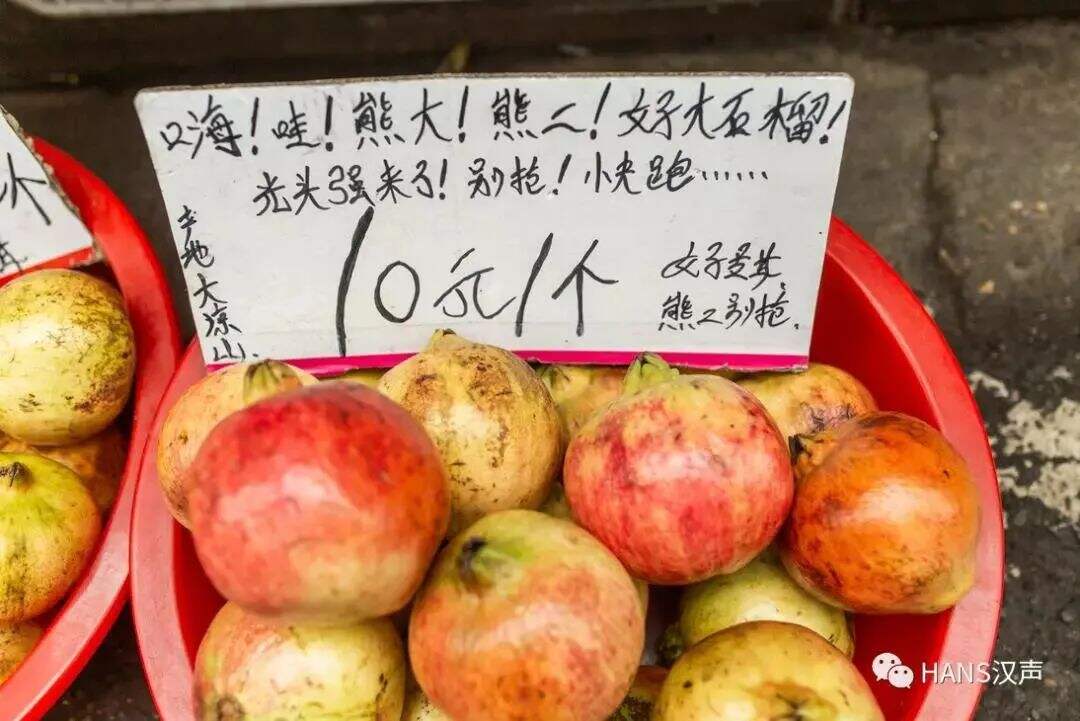 嗨！哇！熊大！熊二！好大石榴！
光头强来了！别抢！快跑……
本地大凉山
10元1个
熊二别抢.
个
HANS汉声